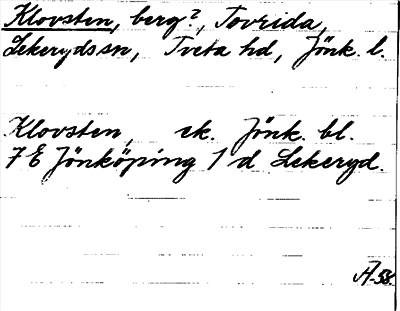 Klovsten, berg?, Tovrida,
Lekeryds sn, Tveta hd, Jönk. l.
Klovsten, ek. Jönk. bl.
7 E Jönköping 1 d Lekeryd.
A-58.